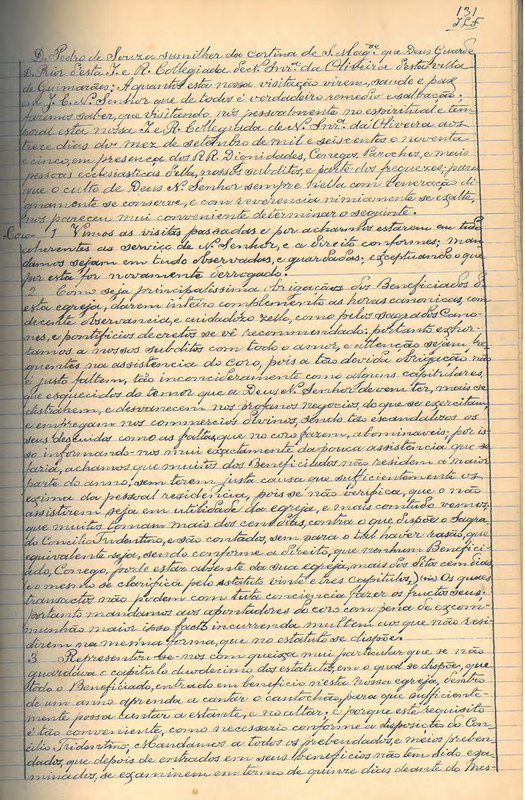 131
D. Pedro de Souza sumilher da cortina de S. Mag.de que Deus Guarde
D. Prior d'esta I. e R. Collegiada de N. Snr.a da Oliveira d'esta villa
de Guimarães; A quantos esta nossa visitação virem, saude e paz
J. C. N. Senhor que de todos é verdadeiro remedio e salvação,
fazemos saber, que visitando nós pessoalmente no espiritual e tem-
poral esta nossa I. e R. Collegiada de N. Snr.a da Oliveira aos
treze dias do mez de setembro de mil e seiscentos e noventa
e cinco, em presença dos R.R. Dignidades, Conegos, Parochos, e mais
pessoas ecclesiasticas d'ella, nossos subditos, e parte dos freguezes; para
que o culto de Deus N. Senhor sempre n'ella com veneração di-
gnamente se conserve, e com reverencia nimiamente se exalte,
nos pareceu mui conveniente determinar o seguinte.
Coro- 1 Vimos as visitas passadas e por acharmos estarem em tudo
coherentes ao serviço de N. Senhor, e a Direito conformes; man-
damos sejam em tudo observadas, e guardadas, exceptuando o que
por esta for novamente derrogado.
2 Como seja principalissima obrigação dos Beneficiados d'
esta egreja, darem inteiro complemento as horas canonicas, com
decente observancia, e cuidadozo zello, como pelos sagrados Cano-
nes, e pontificios decretos se vê recommendado: portanto exhor-
tamos a nossos subditos com todo o amor, e attenção sejam fre-
quentes na assistencia do coro, pois a tão devida obrigação não
é justo faltem, tão inconsideramente como alguns capitulares,
que esquecidos do temor que a Deus N. Senhor devem ter, mais se
distrahem, e desvanecem nos profanos negocios, do que se exercitam,
e empregam nos commercios divinos, sendo tão escandalozos os
seus descuidos como as faltas, que no coro fazem, abominaveis; por is-
so informando-nos mui exactamente da pouca assistencia que se
fazia, achamos que muitos dos Beneficiados não residem a maior
parte do anno, sem terem justa causa que sufficientemente os
exima da pessoal residencia, pois se não verifica, que o não
assistirem seja em utilidade da egreja, e mais comtudo vemos,
que muitos tomam mais dos cem dias, contra o que dispõe o Sagra-
do Concilio Tridentino, e são contados, sem para o tal haver rasão, que
equivalente seja, sendo conforme a Direito, que nenhum Benefici-
ado, Conego, pode estar absente da sua egreja, mais dos ditos cem dias,
e o mesmo se clarifica pelo estatuto vinte e tres capitulos, Os quaes
transactos não podem com tuta conciencia fazer os fructos seus:
portanto mandamos aos apontadores do coro com pena de excom-
munhão maior ipso facto incurrenda multem aos que não resi-
direm na mesma forma, que no estatuto se dispõe.
3 Representou-se-nos com queixa mui particular que se não
guardava o capitulo duodecimo dos estatutos, em o qual se dispõe, que
todo o Beneficiado, entrado em beneficio n'esta nossa egreja, dentro
de um anno aprenda a cantar o cantochão, para que sufficiente-
mente possa cantar a estante, e no altar; e porque este requisito
é tão conveniente, como necessario conforme a disposição do Con-
cilio Tridentino; Mandamos a todos os prebendados, e meios preben-
dados, que depois de entrados em seus beneficios não tem sido exa-
minados, se examinem em termo de quinze dias deante do Mes-